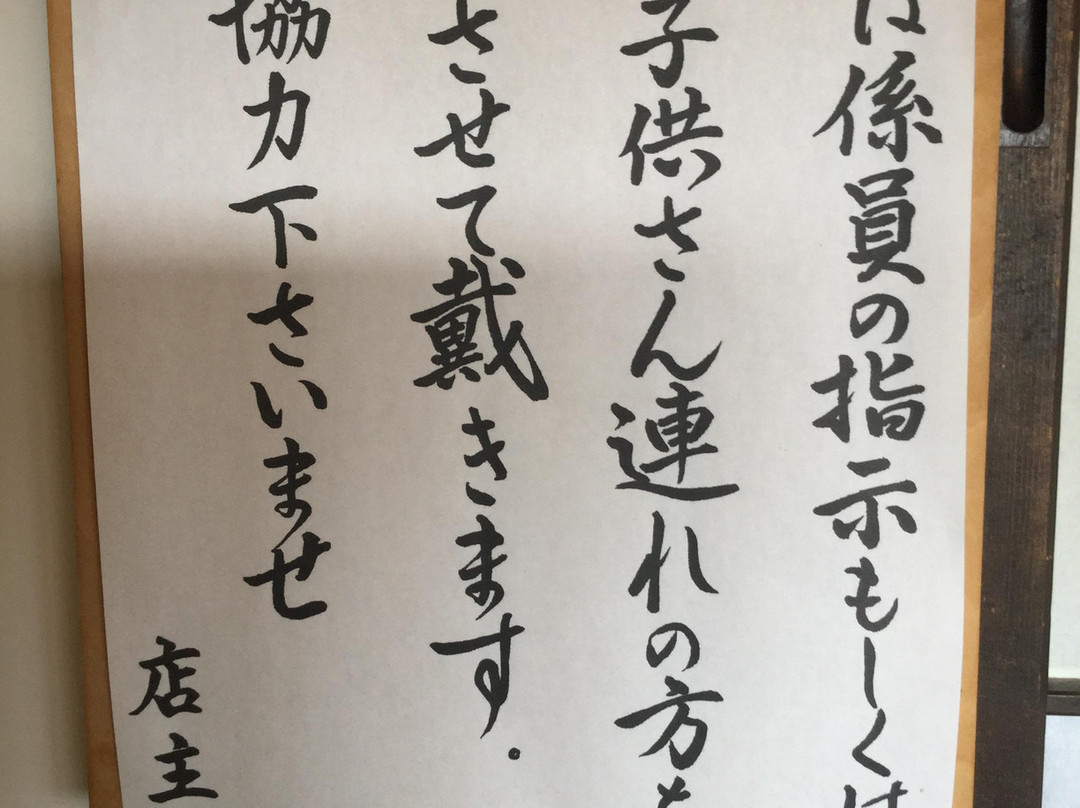 は係員の指示もしくは
子供さん連れの方も
させて戴きます。
協力下さいませ
店主